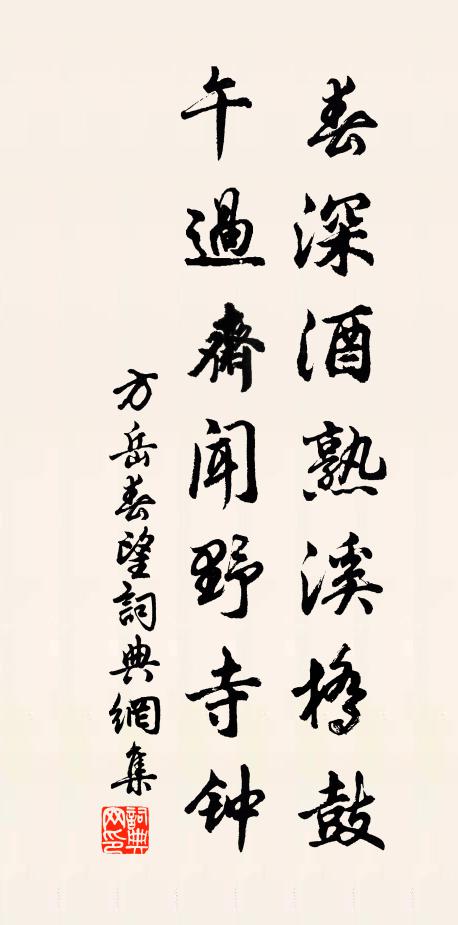 春深酒熟溪橋鼓
午過齋聞野寺钟
方岳春望詞典網集
詞典
网印